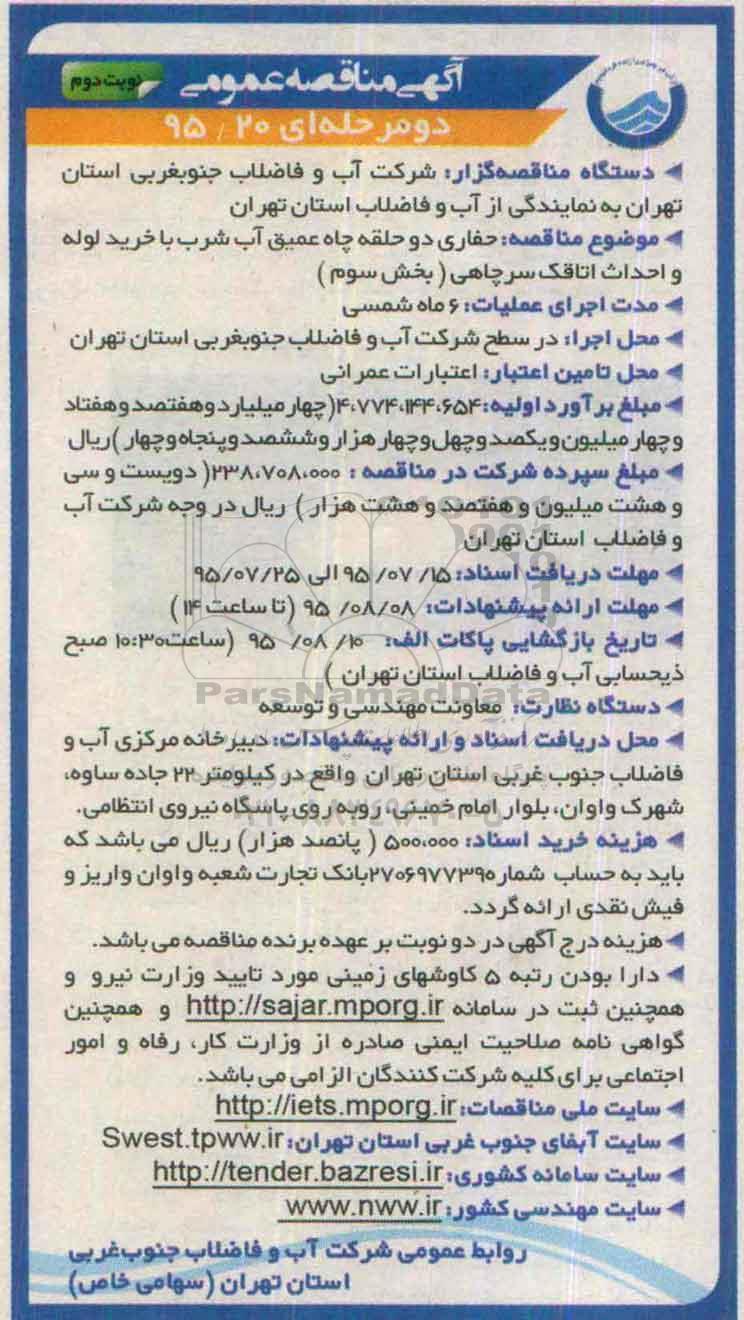 آگهی مناقصه عمومی
نوبت دوم
دو مرحله‌ای ۲۰ / ۹۵
دستگاه مناقصه‌گزار: شرکت آب و فاضلاب جنوبغربی استان
تهران به نمایندگی از آب و فاضلاب استان تهران
موضوع مناقصه: حفاری دو حلقه چاه عمیق آب شرب با خرید لوله
و احداث اتاقک سرچاهی ( بخش سوم )
مدت اجرای عملیات: ۶ ماه شمسی
محل اجرا: در سطح شرکت آب و فاضلاب جنوبغربی استان تهران
محل تامین اعتبار: اعتبارات عمرانی
مبلغ برآورد اولیه: ۴،۷۷۴،۱۴۴،۶۵۴(چهار میلیارد و هفتصد و هفتاد
و چهار میلیون و یکصد و چهل و چهار هزار و ششصد و پنجاه و چهار )ریال
مبلغ سپرده شرکت در مناقصه : ۲۳۸،۷۰۸،۰۰۰( دویست و سی
و هشت میلیون و هفتصد و هشت هزار ) ریال در وجه شرکت آب
و فاضلاب استان تهران
مهلت دریافت اسناد: ۱۵/ ۰۷/ ۹۵ الی ۹۵/۰۷/۲۵
مهلت ارائه پیشنهادات: ۰۸/۰۸/ ۹۵ (تا ساعت ۱۴ )
تاریخ بازگشایی پاکات الف: ۱۰/ ۰۸/ ۹۵ (ساعت۱۰:۳۰ صبح
ذیحسابی آب و فاضلاب استان تهران )
ParsNamadData
دستگاه نظارت: معاونت مهندسی و توسعه
محل دریافت اسناد و ارائه پیشنهادات: دبیرخانه مرکزی آب و
فاضلاب جنوب غربی استان تهران واقع در کیلومتر ۲۲ جاده ساوه،
شهرک واوان، بلوار امام خمینی، روبه روی پاسگاه نیروی انتظامی.
هزینه خرید اسناد: ۵۰۰،۰۰۰ ( پانصد هزار) ریال می باشد که
باید به حساب شماره۲۷۰۶۹۷۷۳۹۰بانک تجارت شعبه واوان واریز و
فیش نقدی ارائه گردد.
هزینه درج آگهی در دو نوبت بر عهده برنده مناقصه می باشد.
دارا بودن رتبه ۵ کاوشهای زمینی مورد تایید وزارت نیرو و
همچنین ثبت در سامانه http://sajar.mporg.ir و همچنین
گواهی نامه صلاحیت ایمنی صادره از وزارت کار، رفاه و امور
اجتماعی برای کلیه شرکت کنندگان الزامی می باشد.
سایت ملی مناقصات: http://iets.mporg.ir
سایت آبفای جنوب غربی استان تهران: Swest.tpww.ir
سایت سامانه کشوری: http://tender.bazresi.ir
سایت مهندسی کشور: www.nww.ir
روابط عمومی شرکت آب و فاضلاب جنوب‌غربی
استان تهران (سهامی خاص)